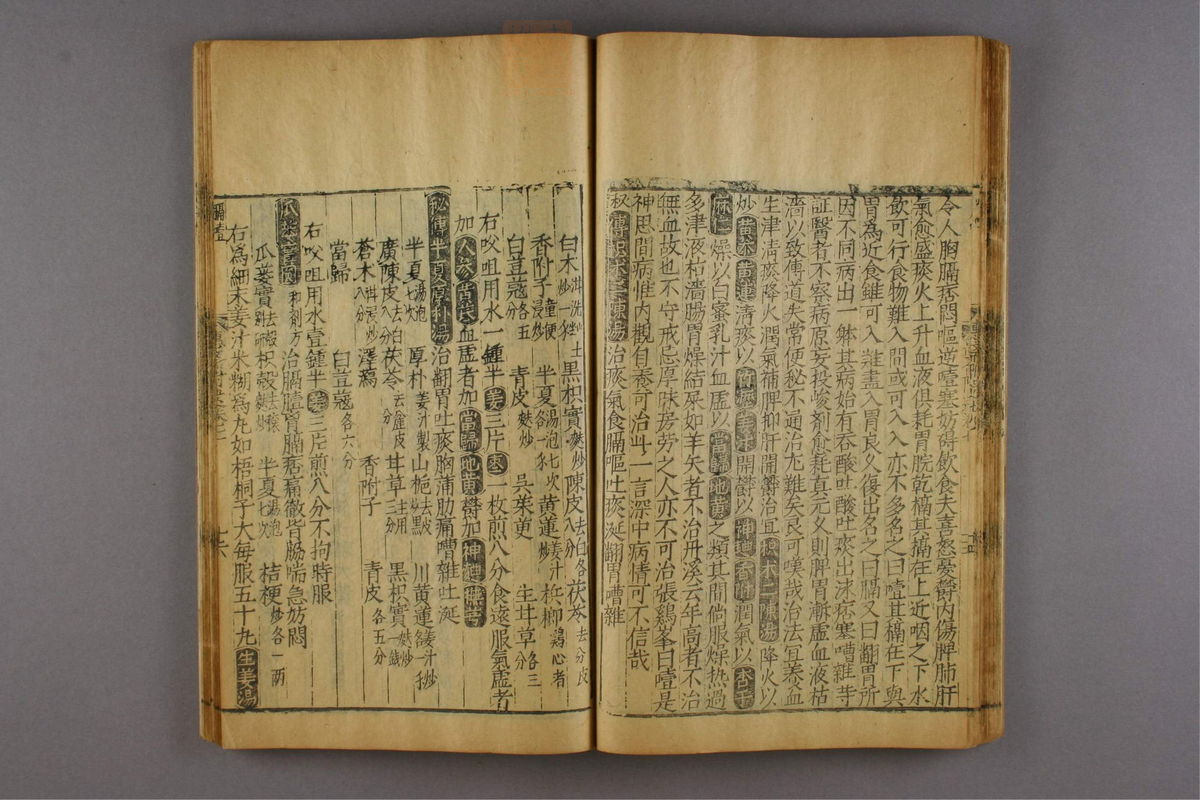 令人胸膈痞悶嘔逆噎塞妨碍飲食夫喜怒憂鬱內傷脾肺肝
氣愈盛痰火上升血液俱耗胃脘乾槁其槁在上近咽之下水
飲可行食物難入間或可入入亦不多名之曰噎其槁在下與
胃為近食雖可入難盡入胃良久復出名之曰膈又曰翻胃所
因不同病出一躰其病始有吞酸吐酸痰出沫痞塞嘈雜等
証醫者不察病原妄投峻劑愈耗真元久則脾胃漸虛血液枯
濇以致傳道失常便秘不通治尤難矣良可嘆哉治法宜養血
生津清痰降火潤氣補脾抑肝開鬱治宜枳木二陳湯降火以
炒黃芩黃連清痰以竹瀝姜汁開鬱以神麯香附潤氣以杏仁
麻仁燥以白蜜乳汁血虛以當歸地黃之類其間倘服燥熱過
多津液枯濇腸胃燥結屎如羊矢者不治丹溪云年高者不治
無血故也不守戒忌厚味房勞之人亦不可治張鷄峯曰噎是
神思間病惟內觀自養可治此一言深中病情可不信哉
秘傳枳术二陳湯治痰氣食膈嘔吐痰涎翻胃嘈雜
白术泔洗土炒一錢 黑枳實麩炒 陳皮去白各八分 茯苓去皮分
香附子童便浸炒 半夏湯泡七次各一錢 黃蓮姜汁炒 梹榔鷄心者
白荳蔻各五分 青皮麩炒 吳茱萸 生甘草各三分
右㕮咀用水一鍾半姜三片棗一枚煎八分食遠服氣虛者
加人參黃芪血虛者加當歸地黃鬱加神麯撫芎
秘傳半夏厚朴湯治翻胃吐痰胸滿肋痛嘈雜吐涎
半夏湯泡七次 厚朴姜汁製 山梔去皮炒黑 川黃蓮姜汁炒
廣陳皮去白八分 茯苓去皮八分 甘草生用三分 黑枳實麩炒一錢
蒼木泔浸炒八分 澤蔫 香附子 青皮各五分
當歸 白荳蔻各六分
右㕮咀用水壹鍾半姜三片煎八分不拘時服
瓜蔞實丸和劑方治膈噎胃膈痞痛徹背脇喘急妨悶
瓜蔞實別研 枳殼去穰麩炒 半夏湯泡七次 桔梗炒各一兩
右為細末姜汁米糊為丸如梧桐子大每服五十九生姜湯
膈噎
十六